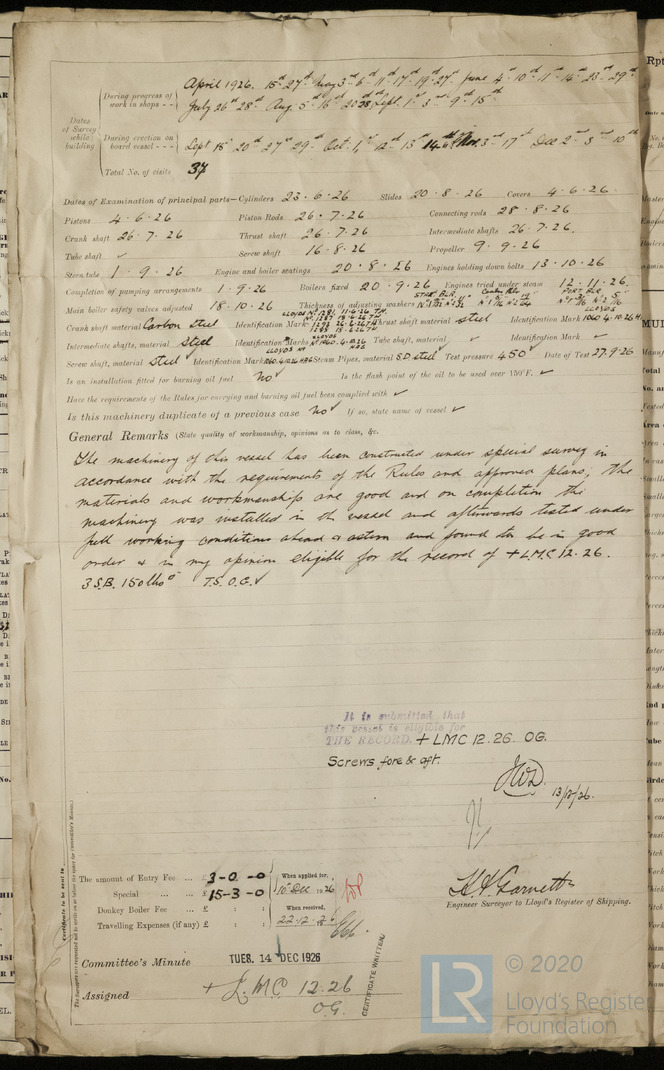 Dates of Survey while building
During progress of work in shops - - April 1926. 15th 27th May 3rd 6th 11th 17th 19th 27th June 4th 10th 11th 14th 23rd 29th
July 26th 28th Aug. 5th 16th 20 28 Sept. 1st 3rd 9th 15th
During erection on board vessel - - - Sept 18th 20th 27th 29th Oct. 1st 12th 13th 14th Nov. 3rd 17th Dec 2nd 3rd 10th
Total No. of visits 37
Dates of Examination of principal parts—Cylinders 23.6.26 Slides 20.8.26 Covers 4.6.26.
Pistons 4.6.26 Piston Rods 26.7.26 Connecting rods 28.8.26
Crank shaft 26.7.26 Thrust shaft 26.7.26 Intermediate shafts 26.7.26.
Tube shaft ✓ Screw shaft 16.8.26 Propeller 9.9.26
Stern tube 1.9.26 Engine and boiler seatings 20.8.26 Engines holding down bolts 13.10.26
Completion of pumping arrangements 1.9.26 Boilers fixed 20.9.26 Engines tried under steam 12.11.26.
Main boiler safety valves adjusted 18.10.26 Thickness of adjusting washers
Crank shaft material Carbon Steel Identification Mark Thrust shaft material steel Identification Mark
Intermediate shafts, material Steel Identification Marks Tube shaft, material ✓ Identification Mark ✓
Screw shaft, material Steel Identification Mark Steam Pipes, material S.D. steel Test pressure 450 Date of Test 27.9.26
Is an installation fitted for burning oil fuel no Is the flash point of the oil to be used over 150°F. ✓
Have the requirements of the Rules for conveying and burning oil fuel been complied with ✓
Is this machinery duplicate of a previous case no If so, state name of vessel ✓
General Remarks (State quality of workmanship, opinions as to class, &c.
The machinery of this vessel has been constructed under special survey in
accordance with the requirements of the Rules and approved plans, the
materials and workmanship are good and on completion the
machinery was installed in the vessel and afterwards tested under
full working conditions ahead & astern and found to be in good
order & in my opinion eligible for the record of + LMC 12.26.
3 S.B. 150 lbs T.S. O.G.
It is submitted that
this vessel is eligible for
THE RECORD. + LMC 12.26. OG.
Screws fore & aft.
The amount of Entry Fee ... £ 3-0-0
Special ... ... £ 15-3-0
Donkey Boiler Fee ... £ : :
Travelling Expenses (if any) £ : :
When applied for,
10th Dec 1926
When received,
22.12.26
Engineer Surveyor to Lloyd's Register of Shipping.
Committee's Minute TUES. 14 DEC 1926
Assigned + LMC 12.26
O.G.
CERTIFICATE WRITTEN
© 2020
Lloyd's Register
Foundation